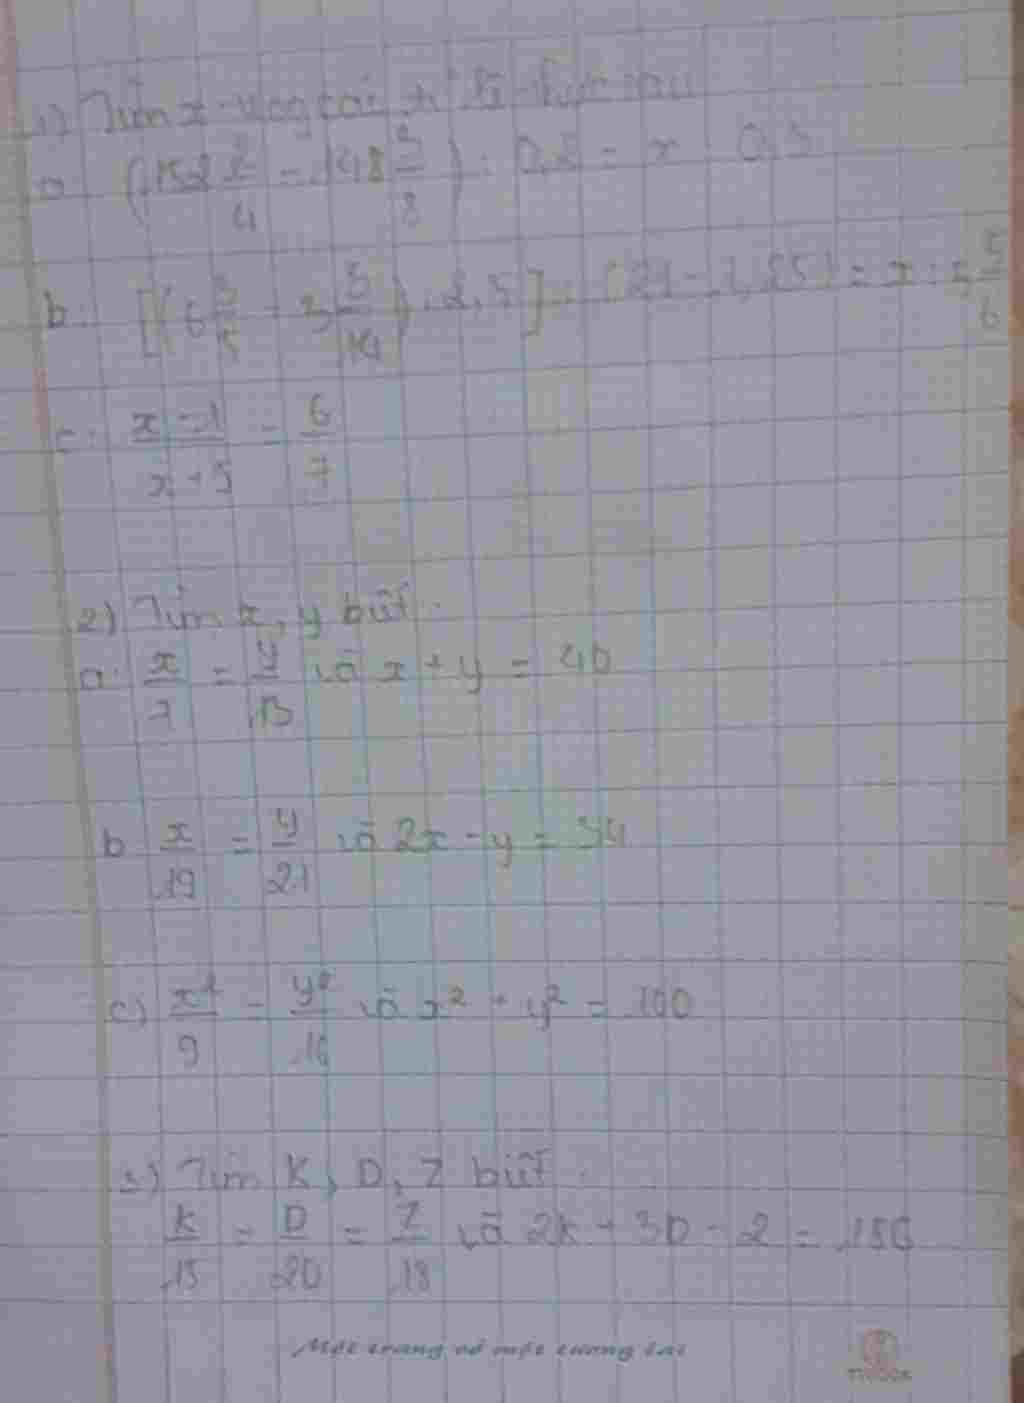 1) Tìm x trong các tỉ lệ thức sau
a. (152 2/4 - 148 3/8) : 0,2 = x : 0,3
b. [(6 3/5 - 3 3/14) . 2,5] : (21 - 1,25) = x : 5 5/6
c. x-1/x+5 = 6/7
2) Tìm x, y biết.
a. x/7 = y/13 và x + y = 40
b x/19 = y/21 và 2x - y = 34
c) x²/9 = y²/16 và x² + y² = 100
3) Tìm K, D, Z biết.
K/15 = D/20 = Z/18 và 2K + 3D - Z = 186
Một trang vở một tương lai